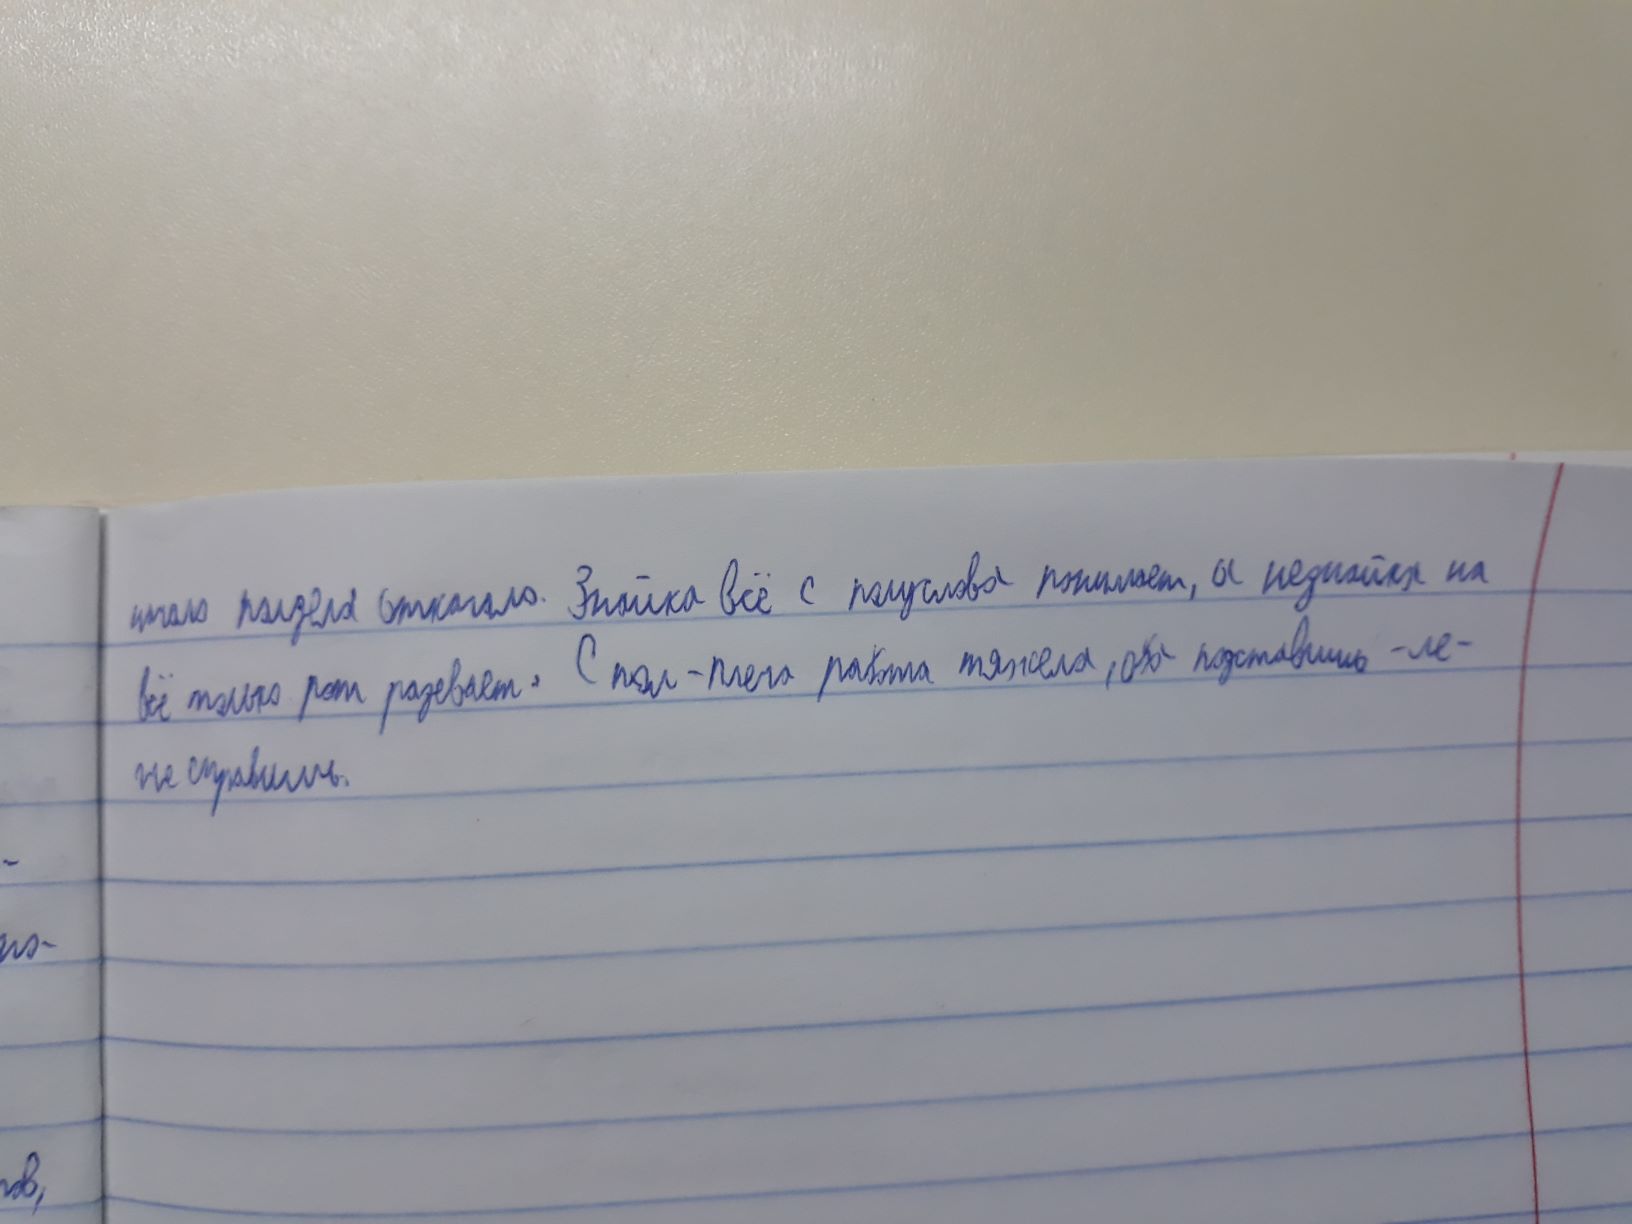 чало полдела откачало. Знайка всё с полуслова понимает, а незнайка на
всё только рот разевает. С пол-плеча работа тяжела, оба подставишь - ле-
че справишь.
-
го-
ов,